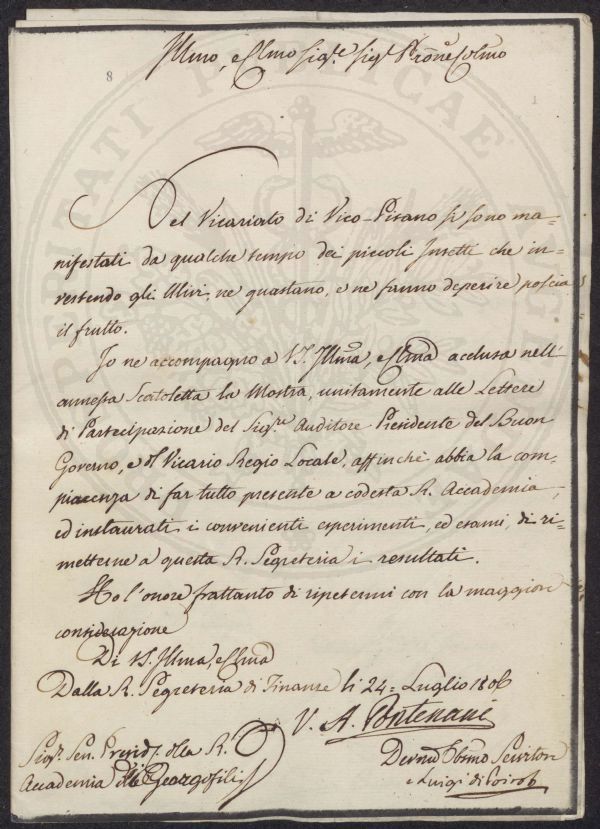 Illmo, e Clmo Sigre Sigr Prone Colmo
8
Nel Vicariato di Vico-Pisano si sono ma=
nifestati da qualche tempo dei piccoli Insetti che in=
vestendo gli Ulivi, ne guastano, e ne fanno deperire poscia
il frutto.
Io ne accompagno a VS. Illma, e Clma acclusa nell'
annessa Scatoletta la Mostra, unitamente alle Lettere
di Partecipazione del Sigre Auditore Presidente del Buon
Governo, e del Vicario Regio Locale, affinchè abbia la com=
piacenza di far tutto presente a codesta R. Accademia,
ed instaurati i convenienti esperimenti, ed esami, di ri=
metterne a questa R. Segreteria i resultati.
Ho l'onore frattanto di ripetermi con la maggiore
considerazione
Di VS. Illma, e Clma
Dalla R. Segreteria di Finanze li 24= Luglio 1806
V. A. Pontenani
Sigr. Sen. Presid. della R.
Accademia dei Georgofili
Devmo Obbmo Servitore
Luigi di